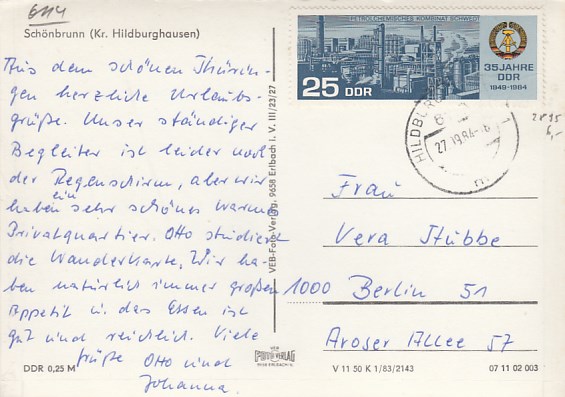 6114
Schönbrunn (Kr. Hildburghausen)
Aus dem schönen Thürin-
gen herzliche Urlaubs-
grüße. Unser ständiger
Begleiter ist leider noch
der Regenschirm, aber wir
haben ein sehr schönes warmes
Privatquartier. Otto studiert
die Wanderkarte, Wir ha-
ben natürlich immer großen
Appetit u. das Essen ist
gut und reichlich. Viele
Grüße Otto und
Johanna.
DDR 0,25 M
VEB-Foto-Verlag, 9658 Erlbach i. V. III/23/27
PETROLCHEMISCHES KOMBINAT SCHWEDT
25 DDR
35 JAHRE
DDR
1949-1984
27.
Frau
Vera Stübbe
1000 Berlin 51
Aroser Allee 57
VEB
FOTO-VERLAG
V 11 50 K 1/83/2143
07 11 02 003